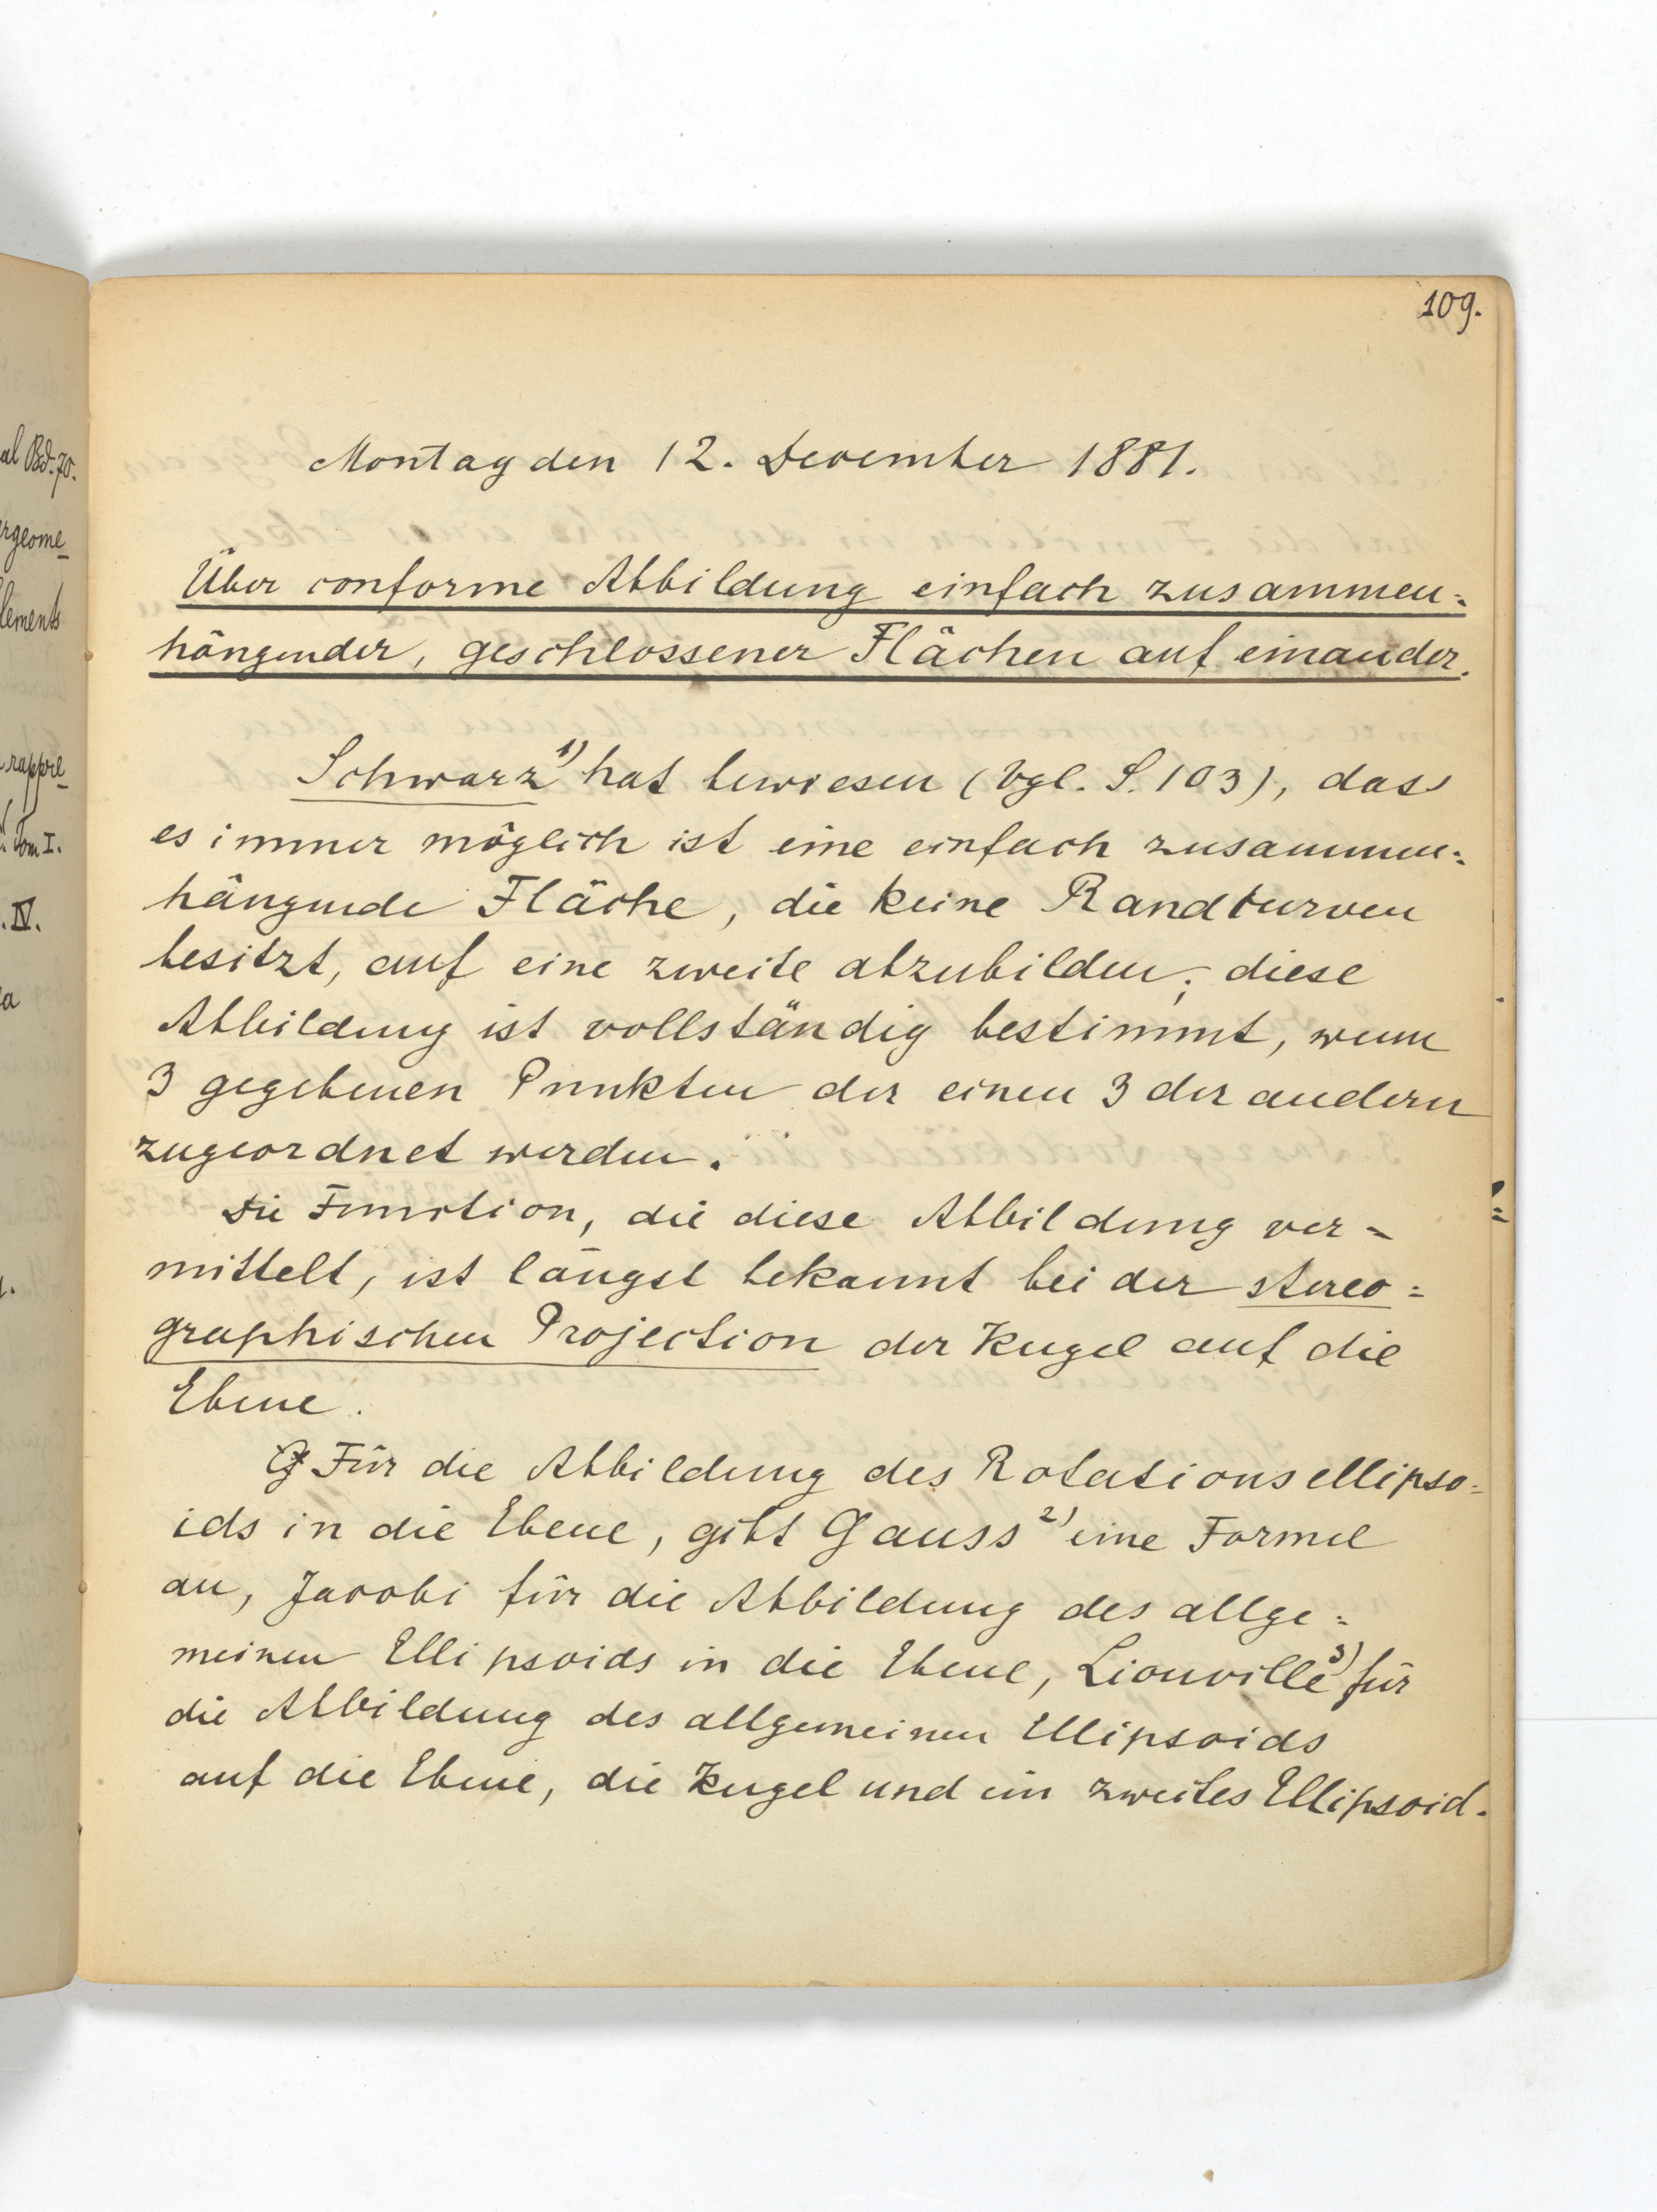 al Bd. 70.
ergeome_
lements
rappre_
. Tom I.
. IV.
a
109.
Montag den 12. December 1881.
Über conforme Abbildung einfach zusammen=
hängender, geschlossener Flächen auf einander.
Schwarz 1) hat bewiesen (Vgl. S. 103), dass
es immer möglich ist eine einfach zusammen=
hängende Fläche, die keine Randcurven
besitzt, auf eine zweite abzubilden; diese
Abbildung ist vollständig bestimmt, wenn
3 gegebenen Punkten der einen 3 der andern
zugeordnet werden.
Die Function, die diese Abbildung ver=
mittelt, ist längst bekannt bei der stereo=
graphischen Projection der Kugel auf die
Ebene.
Für die Abbildung des Rotationsellipso=
ids in die Ebene, gibt Gauss 2) eine Formel
an, Jacobi für die Abbildung des allge=
meinen Ellipsoids in die Ebene, Liouville 3) für
die Abbildung des allgemeinen Ellipsoids
auf die Ebene, die Kugel und ein zweites Ellipsoid.